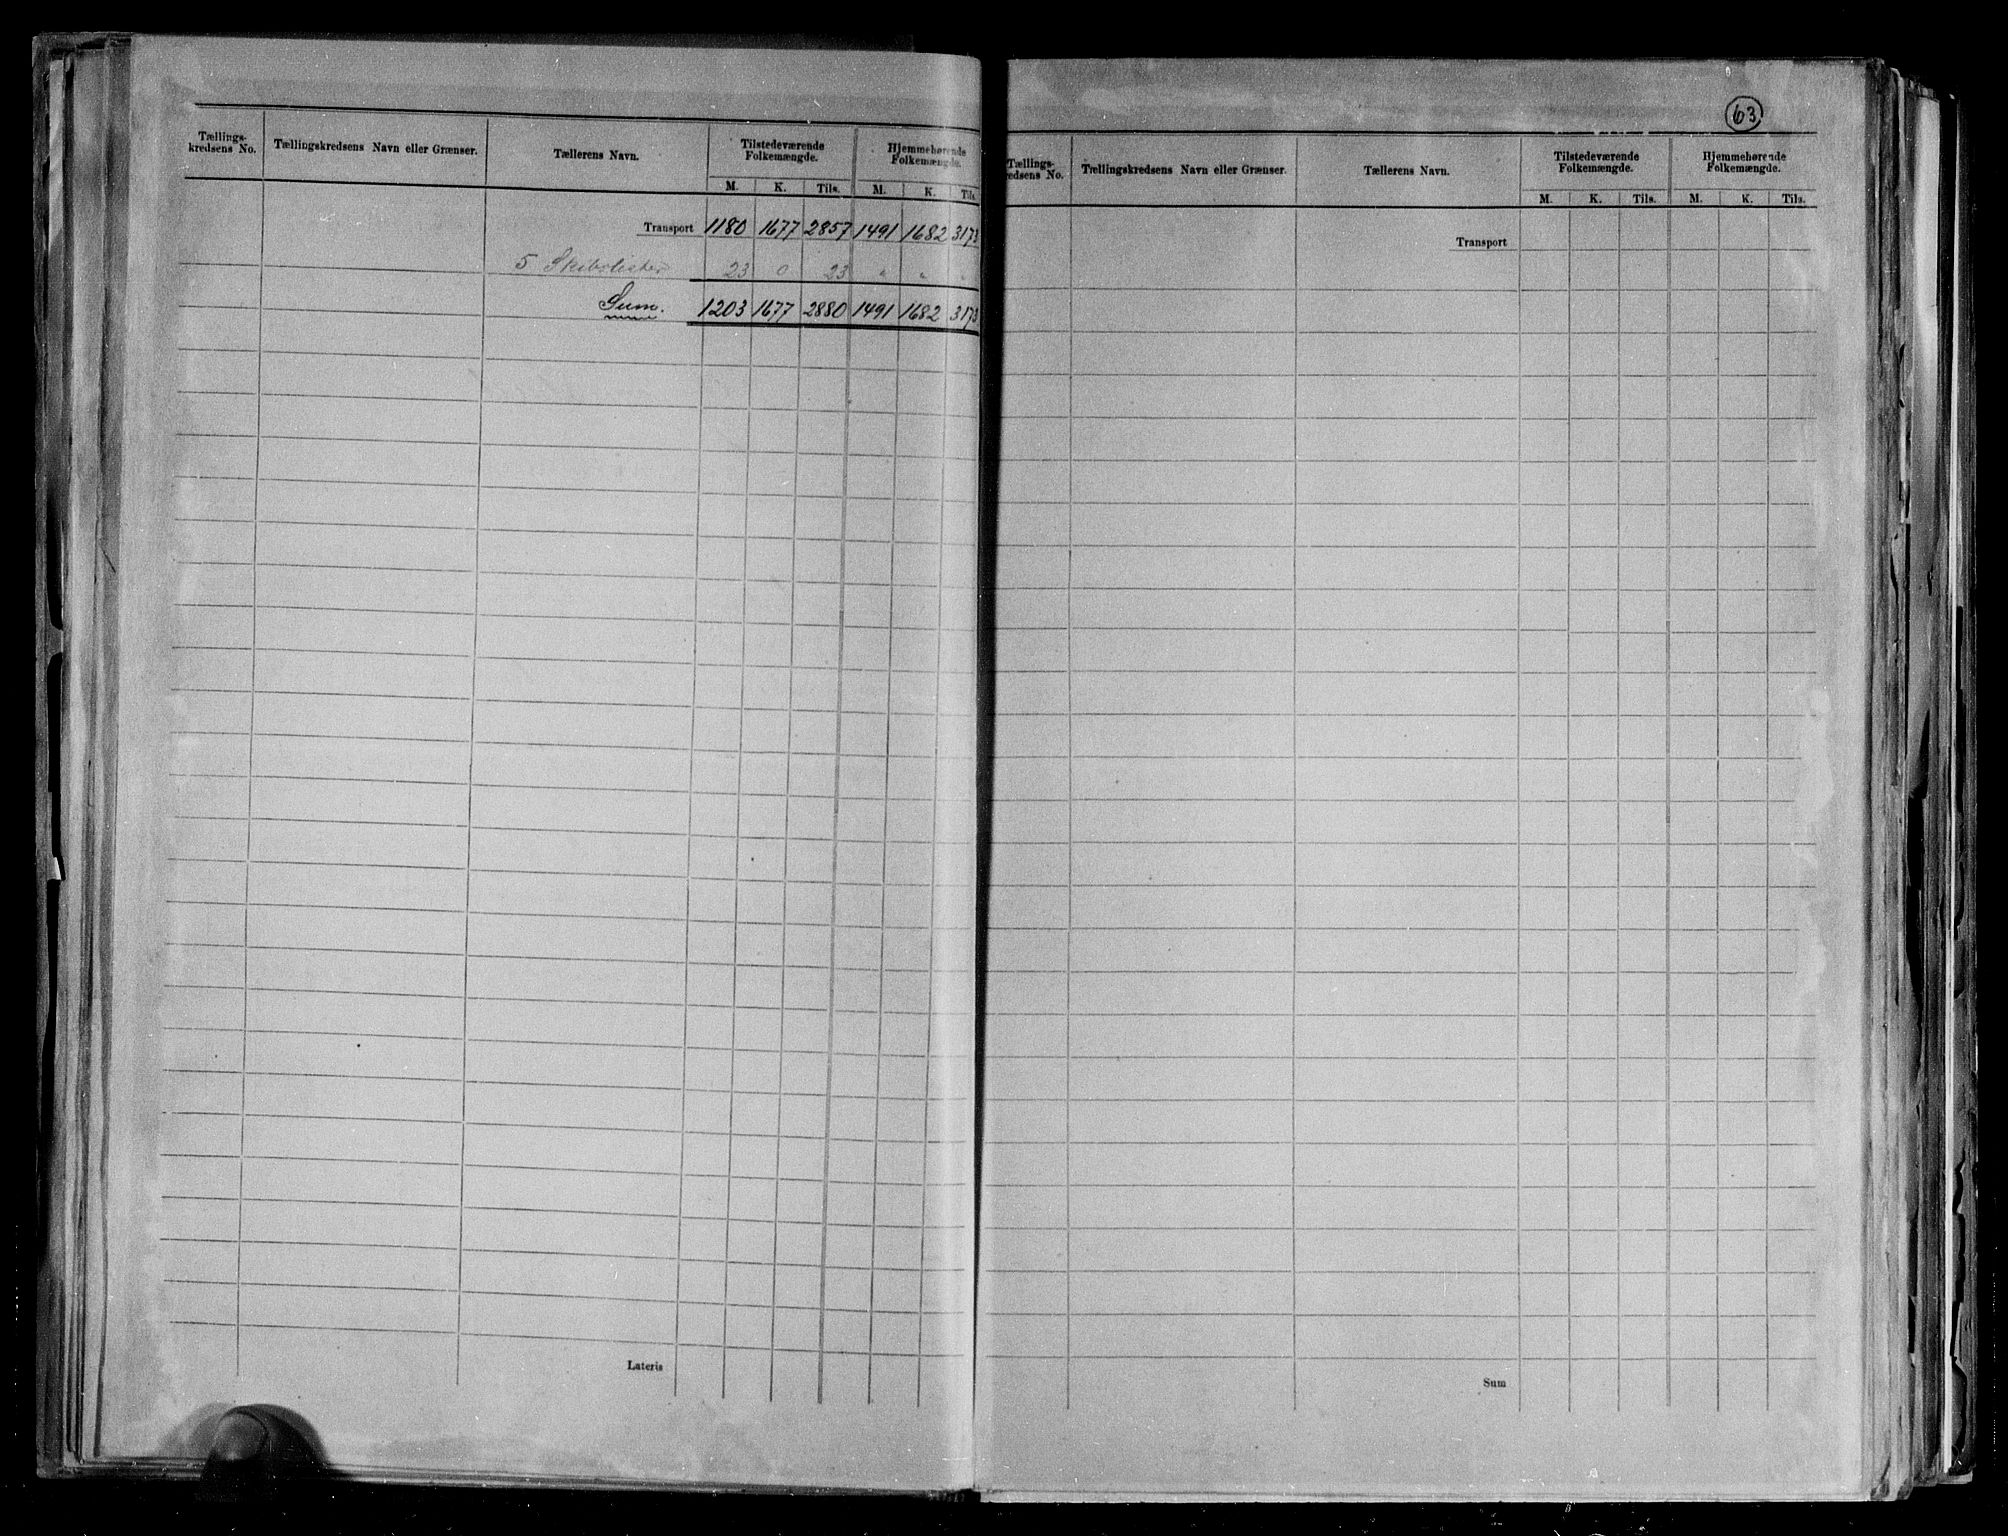 Tællings-
kredsens No. Tællingskredsens Navn eller Grænser. Tællerens Navn. Tilstedeværende Folkemængde. Hjemmehørende Folkemængde.
M. K. Tils. M. K. Tils.
Transport 1180 1677 2857 1491 1682 3173
5 Skibslister 23 0 23 " " "
Sum. 1203 1677 2880 1491 1682 3173
Lateris
63
Tællings-
redsens No. Tællingskredsens Navn eller Grænser. Tællerens Navn. Tilstedeværende Folkemængde. Hjemmehørende Folkemængde.
M. K. Tils. M. K. Tils.
Transport
Sum